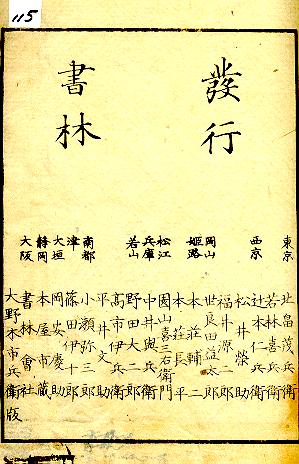 115
發行
書林
東京 北畠茂兵衛
若林喜兵衛
西京 辻本仁兵衛
松井榮助
福井源二郎
岡山 世良田益太郎
姫路 本莊輔二
本莊長平
松江 園山喜三右衛門
兵庫 中井與兵衛
若山 野田大二郎
高市伊兵衛
平井文助
南都 小瀬弥三郎
津 篠田伊十郎
大垣 岡安慶助
静岡 本屋市蔵
大阪 書林會社
大野木市兵衛版